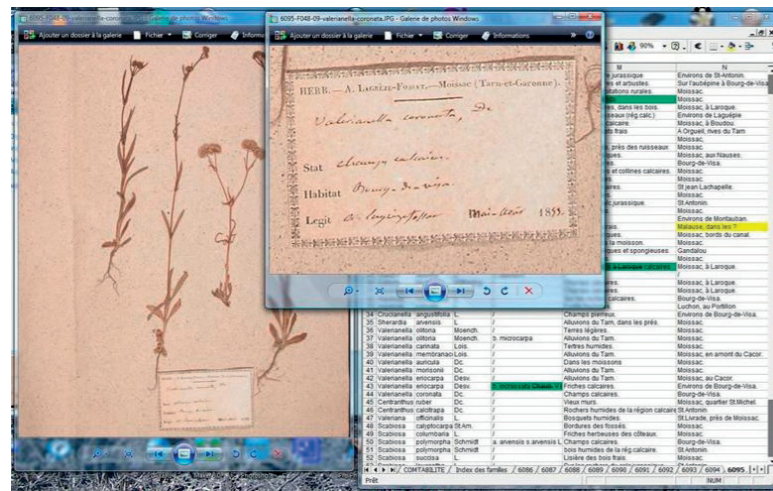 6095-F048-09-valerianella-coronata.JPG - Galerie de photos Windows
Ajouter un dossier à la galerie Fichier Corriger Informations
HERB. — A. LAGRÈZE-FOSSAT. — Moissac (Tarn-et-Garonne).
Valerianella coronata, De
Stat champs calcaires.
Habitat Bourg-de-visa.
Legit a. lagrèze fossat Mai 1855.
90%
M N
jurassique Environs de St-Antonin.
res et arbustes. Sur l'aubépine à Bourg-de-Visa
itations rurales. Moissac.
Moissac.
es, dans les bois. Moissac, à Laroque.
seaux (rég.calc.) Environs de Laguépie
calcaire. Moissac, à Boudou.
ts frais A Orgueil, rives du Tarn
Moissac,
, près des ruisseaux Moissac.
ques. Moissac, aux Nauses.
Bourg-de-Visa.
s et collines calcaires. Moissac.
es. Moissac.
aires. St jean Lachapelle.
Moissac.
jurassique. St Antonin.
Moissac.
Environs de Montauban.
rais. Malause, dans les ?
ques. Moissac, bords du canal.
a la moisson. Moissac.
ques et spongieuses. Gandalou
Moissac.
calcaires. Moissac, à Laroque.
/
Moissac, à Laroque.
Moissac, à Laroque.
calcaires. Bourg-de-Visa.
Luchon, au Portillon
34 Crucianella angustifolia L. / Champs pierreux. Environs de Bourg-de-Visa.
35 Sherardia arvensis L. / Alluvions du Tarn, dans les prés. Moissac.
36 Valerianella olitoria Moench. / Terres légères. Moissac.
37 Valerianella olitoria Moench. b. microcarpa Alluvions du Tarn. Moissac.
38 Valerianella carinata Lois. / Tertres humides. Moissac.
39 Valerianella membranac Lois. / Alluvions du Tarn. Moissac, en amont du Cacor.
40 Valerianella auricula Dc. / Dans les moissons Moissac.
41 Valerianella morisonii Dc. / Alluvions du Tarn. Moissac.
42 Valerianella eriocarpa Desv. / Alluvions du Tarn. Moissac, au Cacor.
43 Valerianella eriocarpa Desv. Friches calcaires. Environs de Bourg-de-Visa.
44 Valerianella coronata Dc. / Champs calcaires. Bourg-de-Visa.
45 Centranthus ruber Dc. / Vieux murs. Moissac, quartier St.Michel.
46 Centranthus calcitrapa Dc. / Rochers humides de la région calcaire St.Antonin.
47 Valeriana officinalis L. / Bosquets humides. St Livrade, près de Moissac.
48 Scabiosa calyptocarpa St.Am. / Bordures des fossés. Moissac.
49 Scabiosa columbaria L. / Friches herbeuses des côteaux. Moissac.
50 Scabiosa polymorpha Schmidt a. arvensis s.arvensis L Champs calcaires. Bourg-de-Visa.
51 Scabiosa polymorpha Schmidt bois humides de la rég.calcaire. St.Antonin.
52 Scabiosa succisa L. / Lisière des bois frais. Moissac.
COMTABILITE / Index des familles / 6086 / 6087 / 6088 / 6089 / 6090 / 6091 / 6092 / 6093 / 6094 / 6095
Prêt NUM